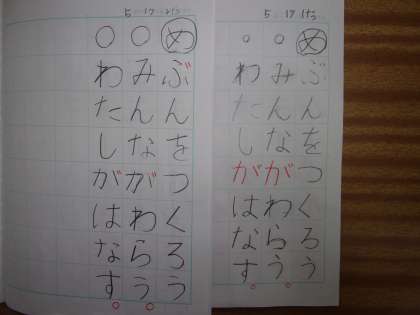 5 17
めぶんをつくろう
○みんながわらう
○わたしがはなす
5 17
めぶんをつくろう
○みんながわらう
○わたしがはなす